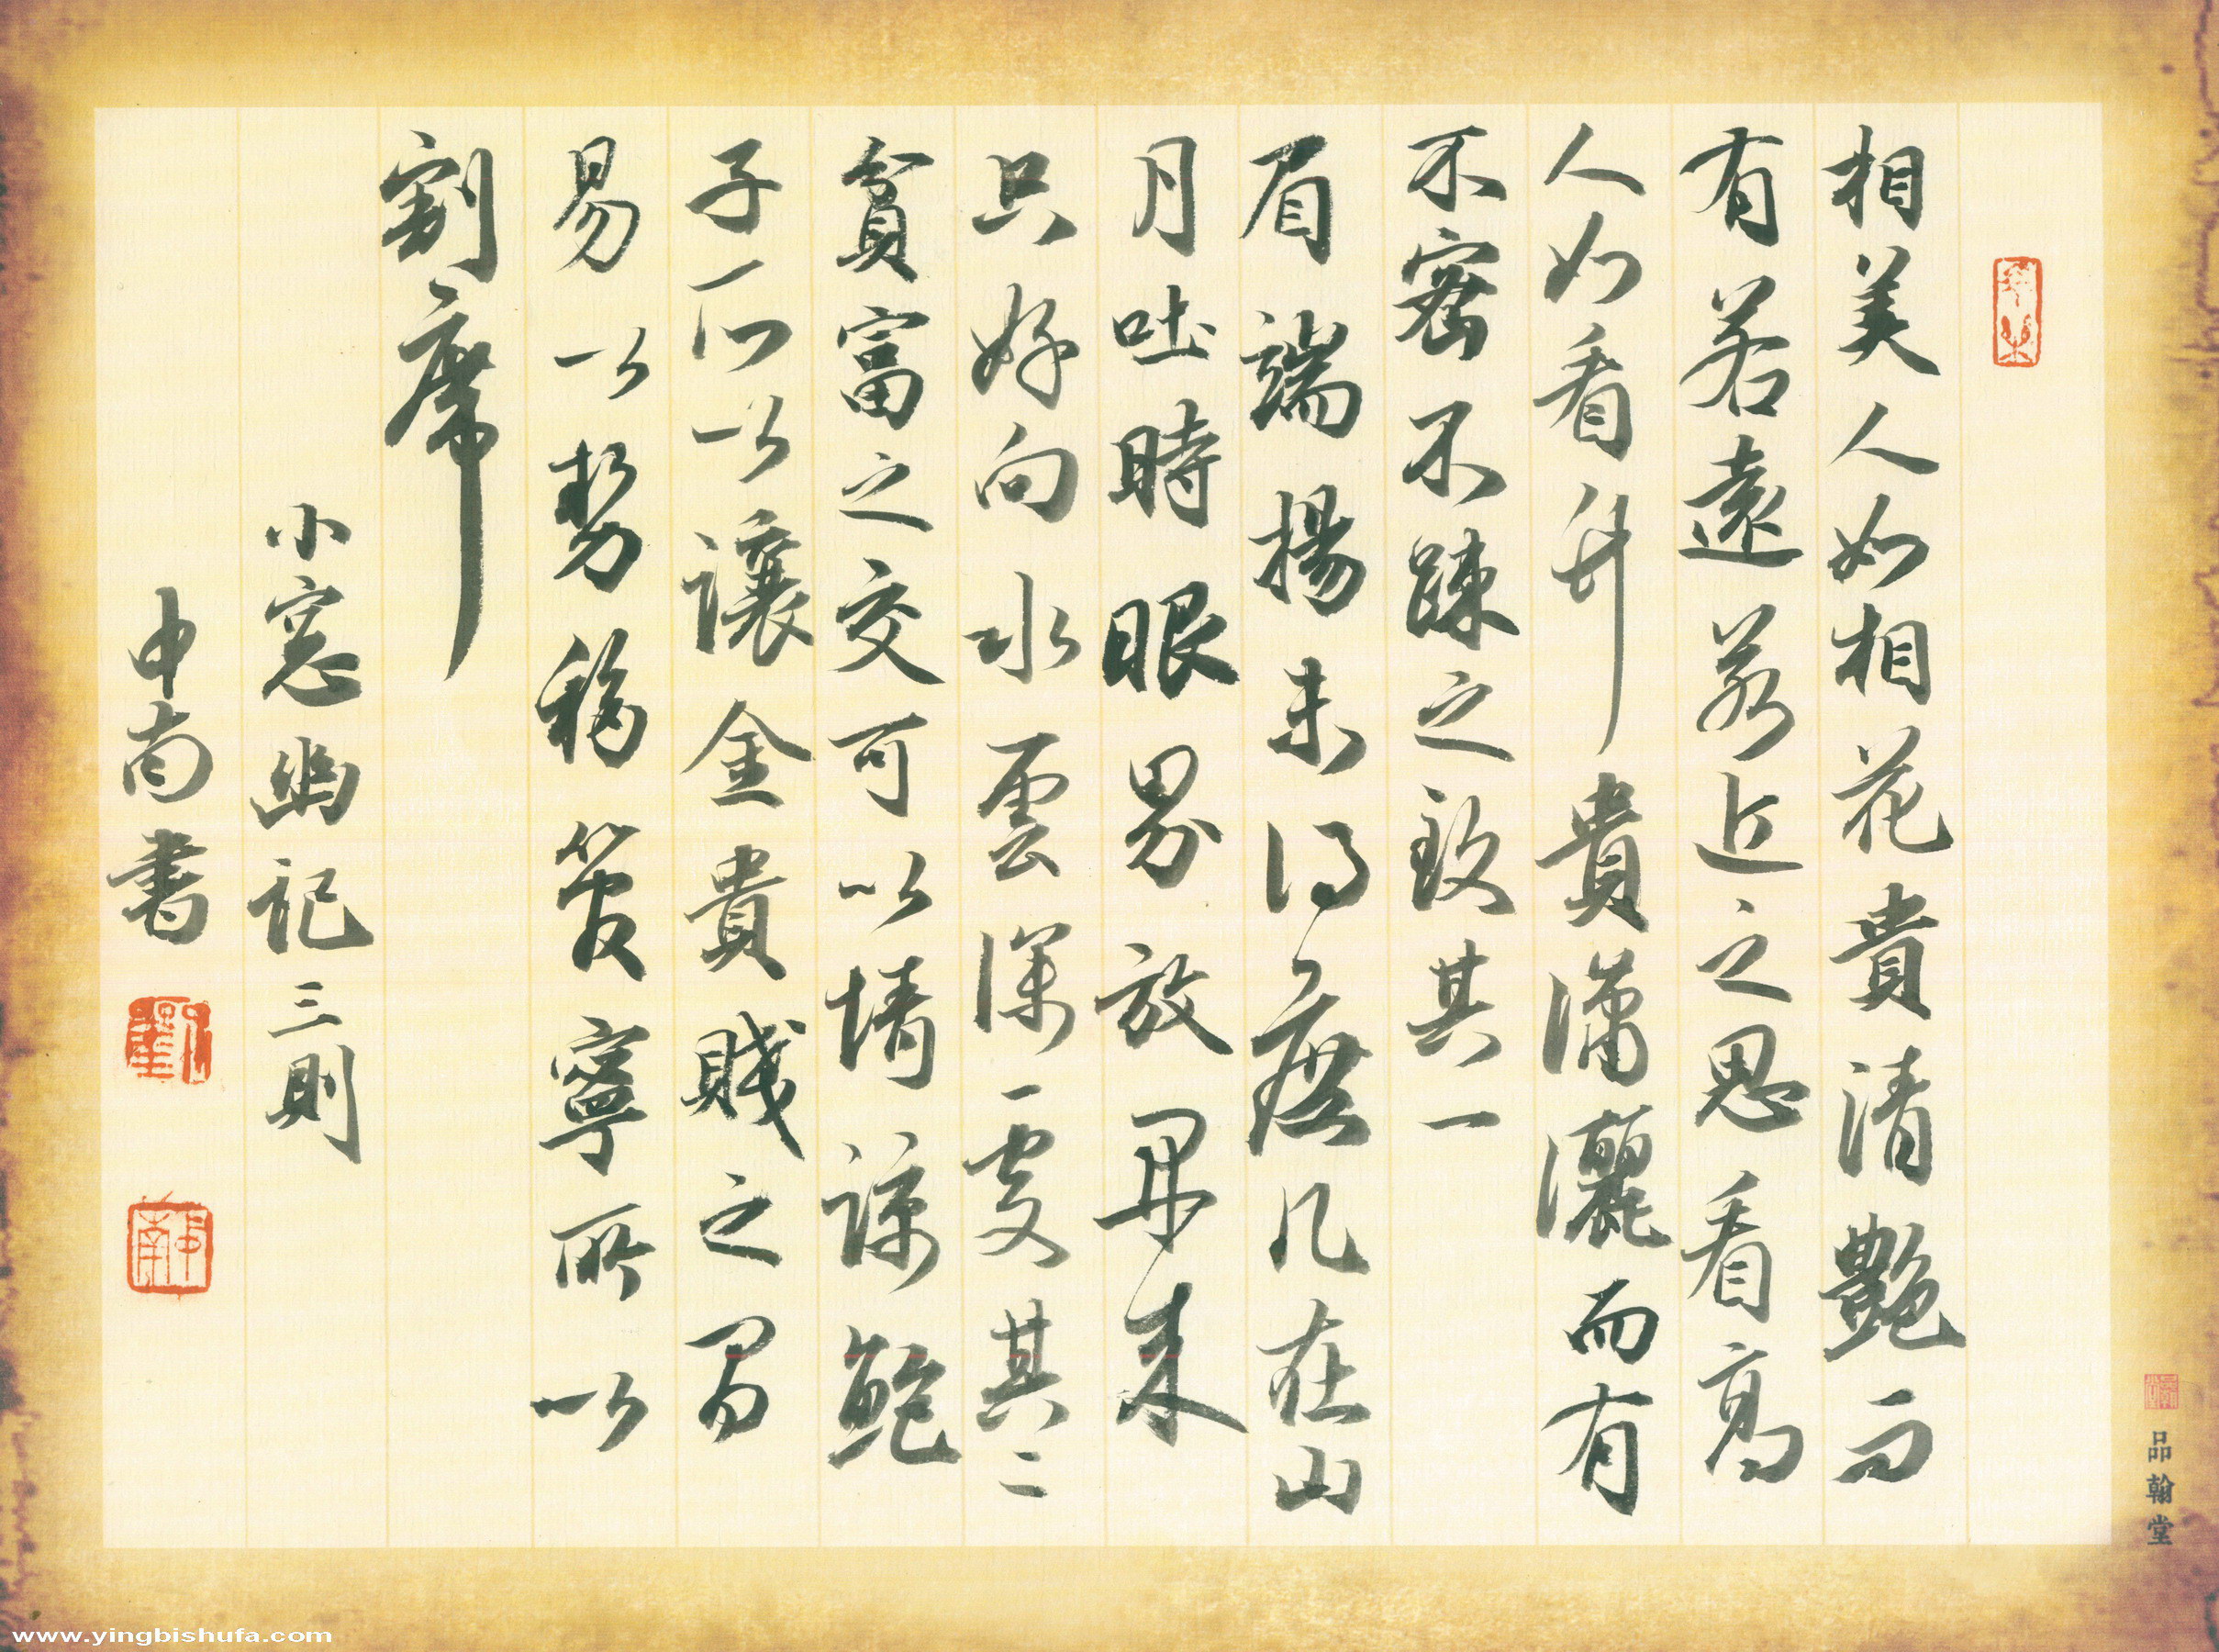 相美人如相花貴清艷而
有若遠若近之思看高
人如看竹貴瀟灑而有
不密不踈之致其一
眉端揚未得庶几在山
月吐時眼界放開来
只好向水雲深處其二
貧富之交可以情諒鮑
子所以讓金貴賤之間
易以勢移管寧所以
割席
小窓幽記三則
申南書
品翰堂
www.yingbishufa.com